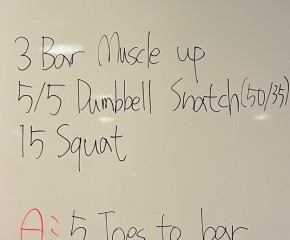 3 Bar Muscle up
5/5 Dumbbell Snatch(50/35)
15 Squat
A: 5 Toes to bar